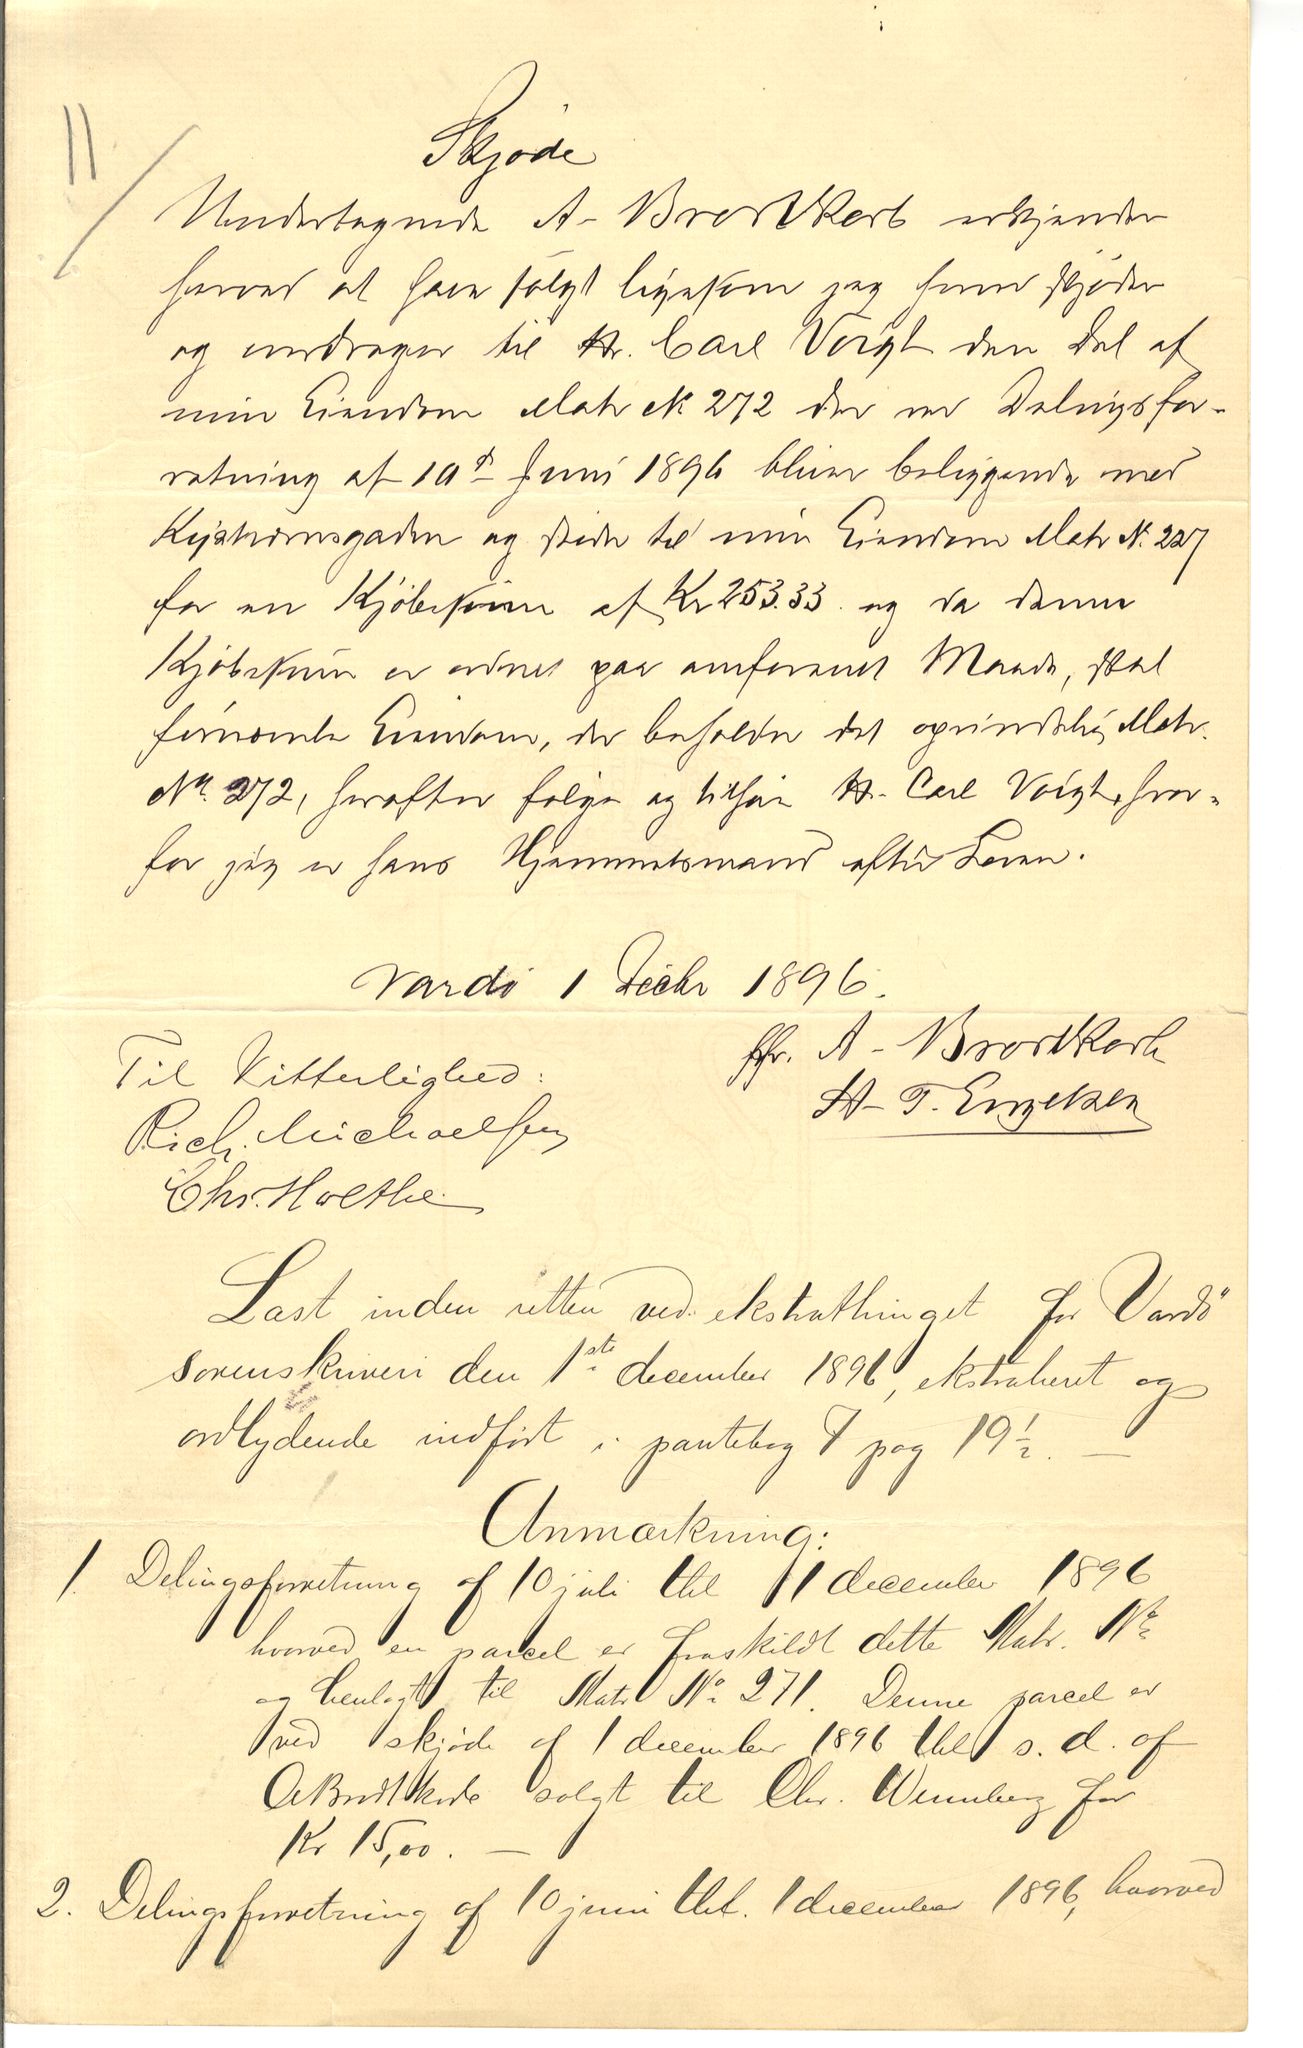 11
Skjøde
Undertegnede A. Brodtkorb erkjender
herved at have solgt ligesom jeg herved skjøder
og overdrager til Hr. Carl Voigt den Del af
min Eiendom Matr № 272 der ved Delingsfor-
retning af 10d Juni 1896 bliver beliggende med
og støder til min Eiendom Matr N. 227
for en Kjøbesum af Kr 253.33 og da denne
Kjøbesum er ordnet paa omforenet Maade, skal
fornævnte Eiendom, der beholder det oprindelig Matr.
No. 272, herefter følge og tilhøre Hr. Carl Voigt, hvor-
for jeg er hans Hjemmelsmand efter Loven.
Vardö 1 Decbr 1896.
ppr. A. Brodtkorb
Til Vitterlighed:
Rich. Michaelsen
Chr. Holthe
Læst inden retten ved ekstrathinget for Vardö
sorenskriveri den 1ste december 1896, ekstraheret og
ordlydende indført i pantebog 7 pag 19½. —
Anmærkning:
1. Delingsforretning af 10 juli thl 11 december 1896
hvorved en parcel er fraskildt dette Matr. No
og henlagt til Matr No 271. Denne parcel er
ved skjøde af 1 december 1896 thl s. d. af
A Brodtkorb solgt til Chr. Wennberg for
Kr 15,00. —
2. Delingsforretning af 10 juni thl. 1 december 1896, hvorved